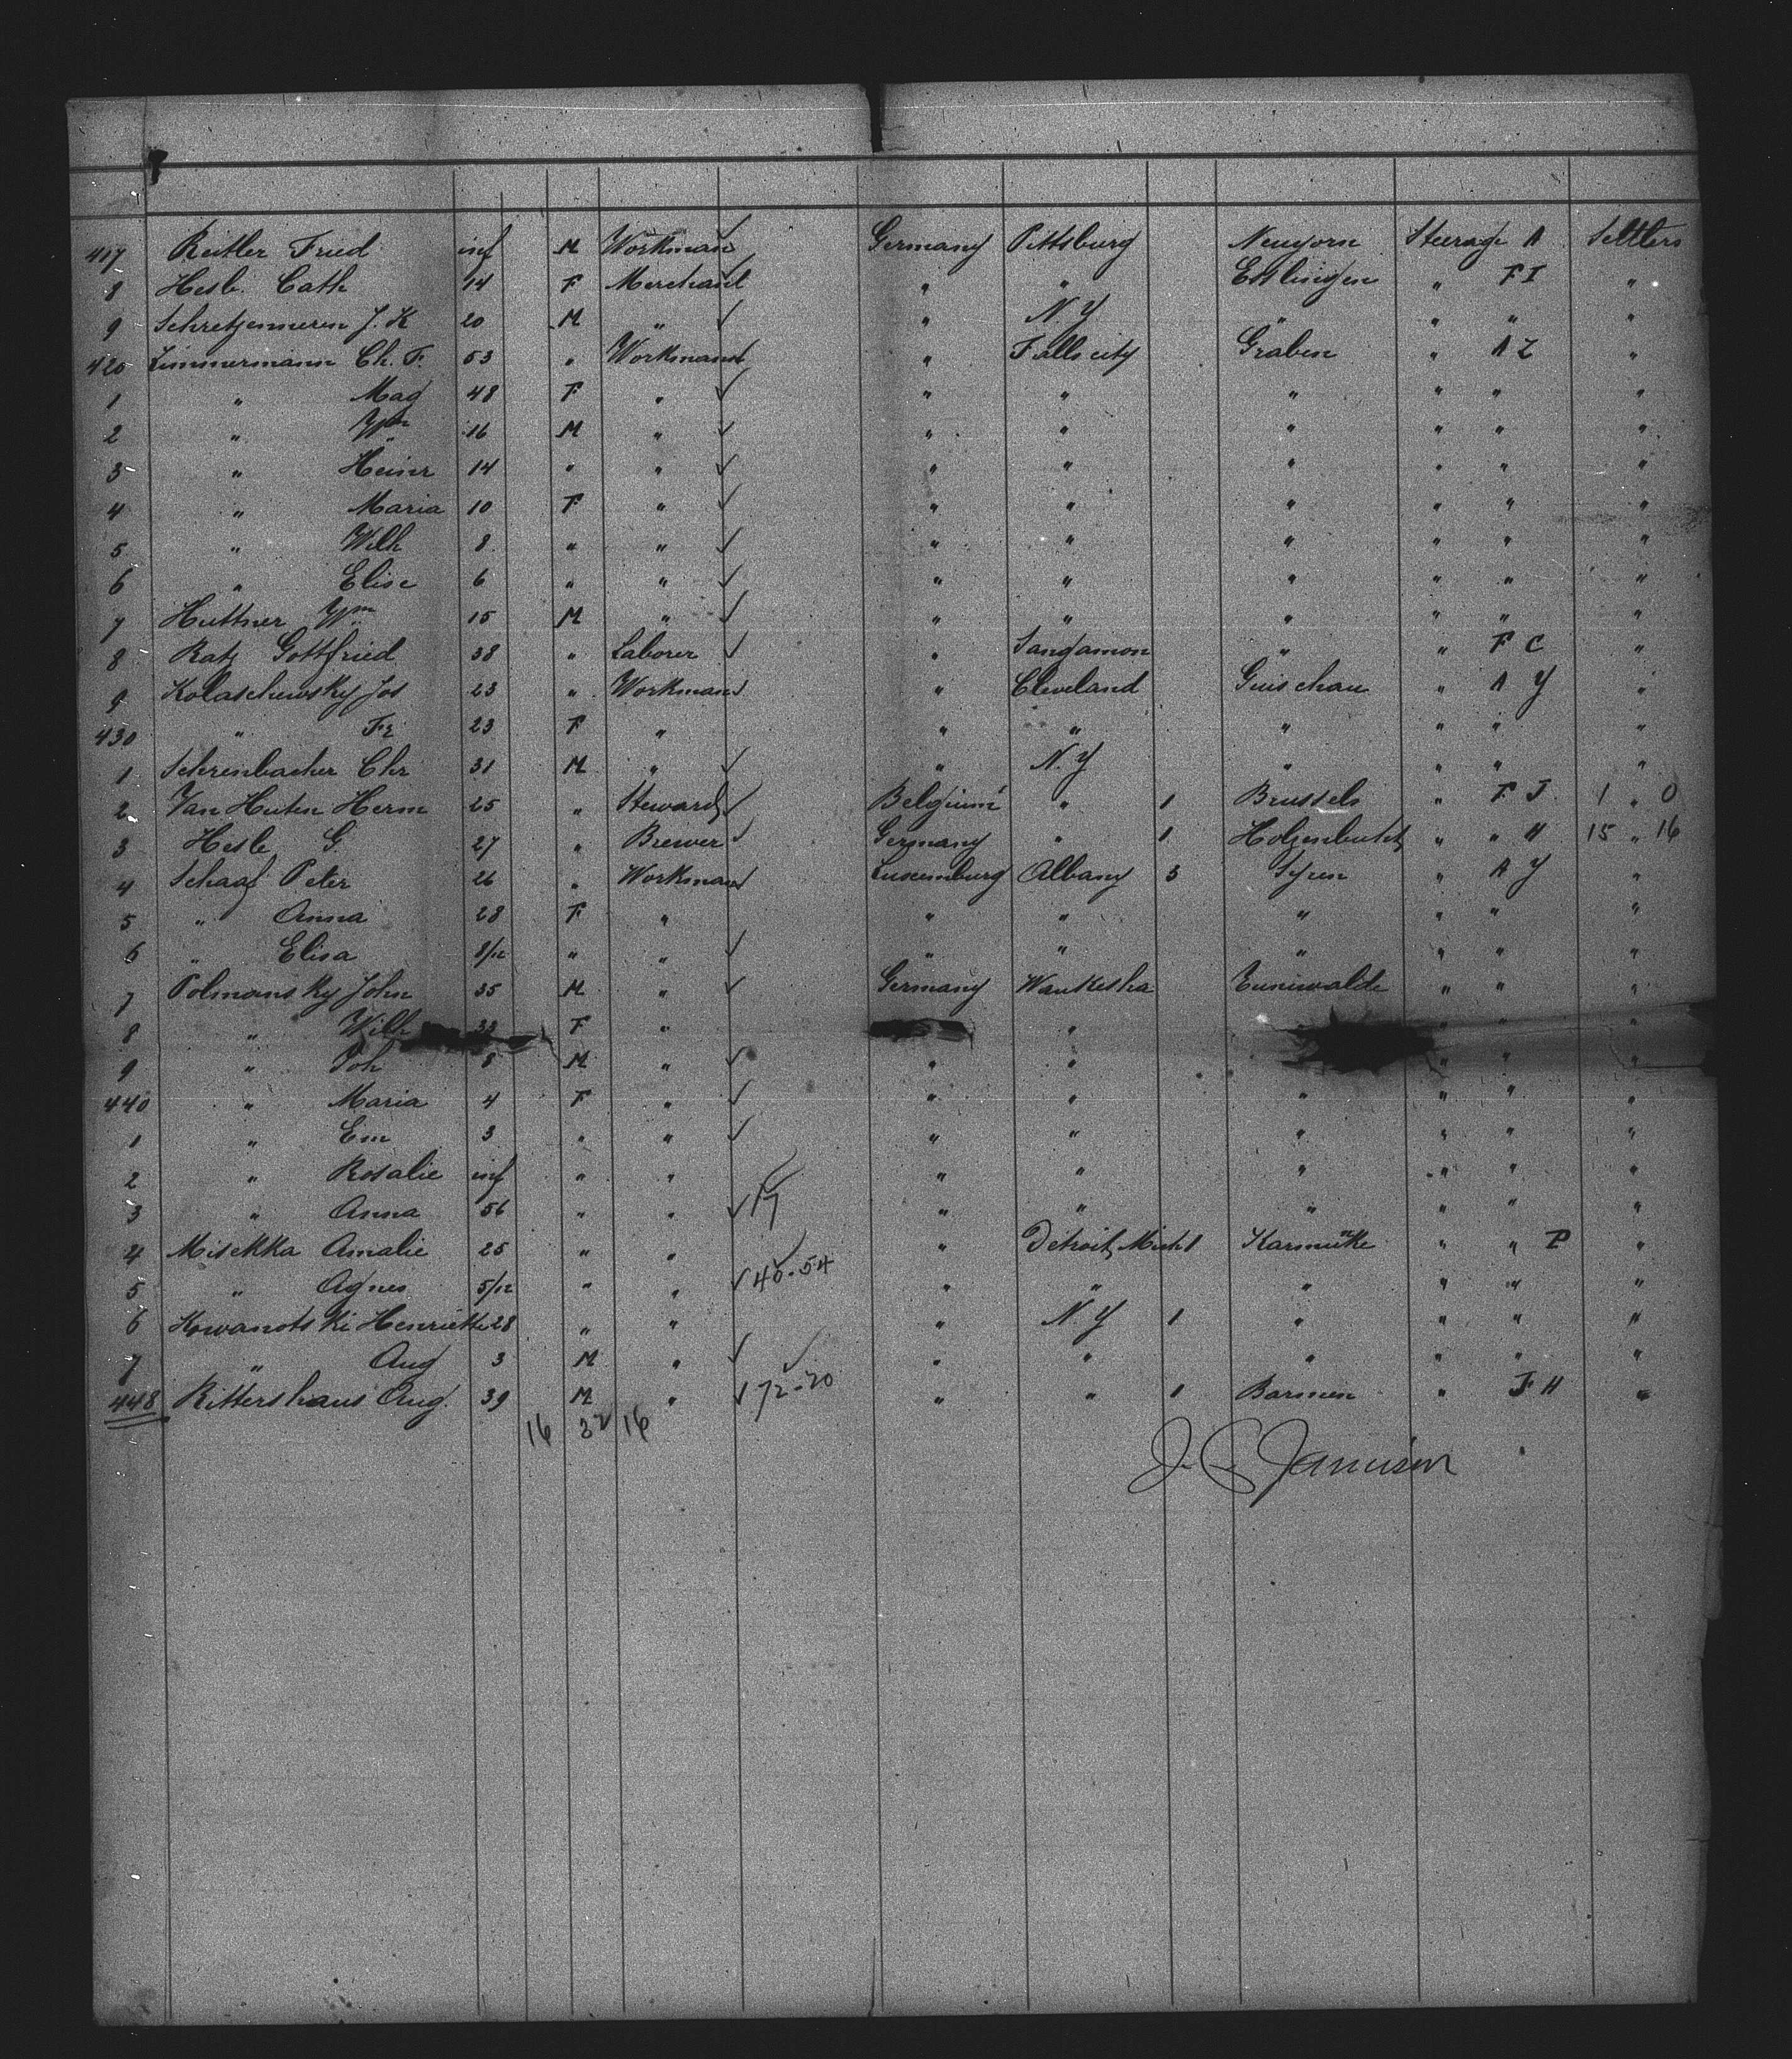 417 Reitler Fried inf M Workman Germany Pittsburg Neuyorn Steerage A Settlers
8 Hesli Cath 14 F Merchant " " Esslingen " F I "
9 Schretzenmeren J. K 20 M " " N. Y " " " "
420 Zimmermann Ch. F. 53 " Workman " Falls city Graben " A Z "
1 " Mag 48 F " " " " " " "
2 " Wm 16 M " " " " " " "
3 " Heinr 14 " " " " " " " "
4 " Maria 10 F " " " " " " "
5 " Wilh 8 " " " " " " " "
6 " Elise 6 " " " " " " " "
7 Huttner Wm 15 M " " " " " " "
8 Ratz Gottfried 38 " Laborer " Sangamon " " F C "
9 Kolaschewsky Jos 23 " Workman " Cleveland Guischau " A Y "
430 " Fr 23 F " " " " " " "
1 Schreinbacher Chr 31 M " " N. Y " " " "
2 Van Huten Herm 25 " Steward Belgium " 1 Brussels " F J 1 " 0
3 Hesle G 27 " Brewer Germany " 1 " " H 15 " 16
4 Schaaf Peter 26 " Workman Luxemburg Albany 3 " A Y "
5 " Anna 28 F " " " " " " "
6 " Elisa 8/12 " " " " " " " "
7 Polmansky John 35 M " Germany Waukesha " " "
8 " Wilh 33 F " " " " "
9 " Joh 8 M " " " " " "
440 " Maria 4 F " " " " " " "
1 " Em 3 " " " " " " " "
2 " Rosalie inf " " " " " " " "
3 " Anna 56 " " 17 " " " " " "
4 Misekka Amalie 25 " " " Detroit, Mich 1 Karmuke " " P "
5 " Agnes 5/12 " " 46-54 " " " " " "
6 Kowanotski Henriette 28 " " " N. Y 1 " " " "
7 " Aug 3 M " " " " " " "
448 Rittershaus Aug. 39 M " 72-20 " " 1 Barmen " F H "
16 32 16
J. G. Jamison